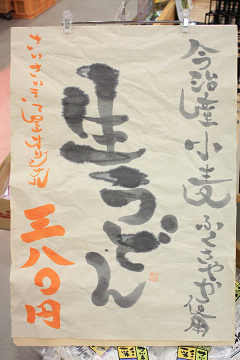 今治産小麦ふくさやか使用
生うどん
さいさいきて屋オリジナル
三八〇円